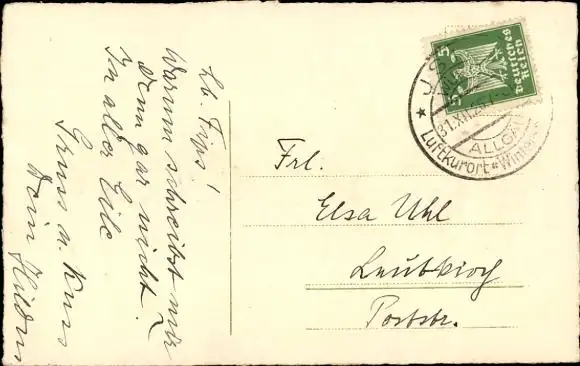 Lb. Fips!
Warum schreibst mir
denn gar nicht?
In aller Eile
Gruss u. Kuss
Dein
Frl.
Elsa Uhl
Leutkirch
Poststr.
5 5
Deutsches
Reich
31.XII.26
ALLGÄU
Luftkurort * Winter